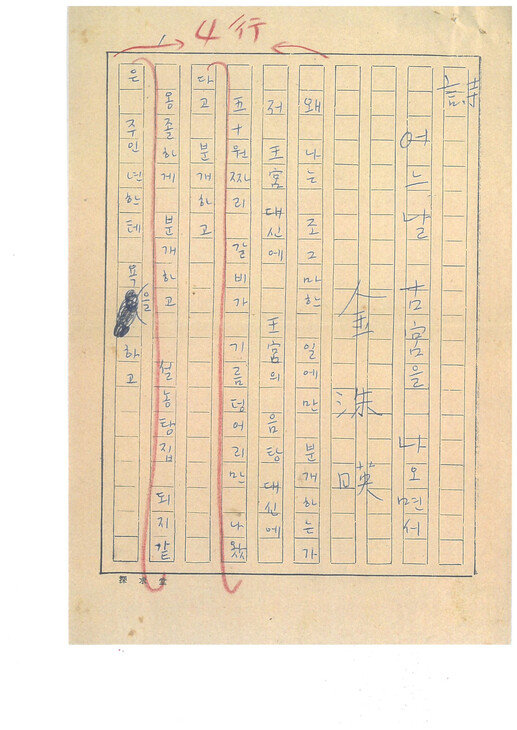 4行
詩
어느날 古宮을 나오면서
金洙暎
왜 나는 조그마한 일에만 분개하는가
저 王宮 대신에 王宮의 음탕 대신에
五十원짜리 갈비가 기름덩어리만 나왔
다고 분개하고
옹졸하게 분개하고 설농탕집 돼지같
은 주인년한테 욕을 하고